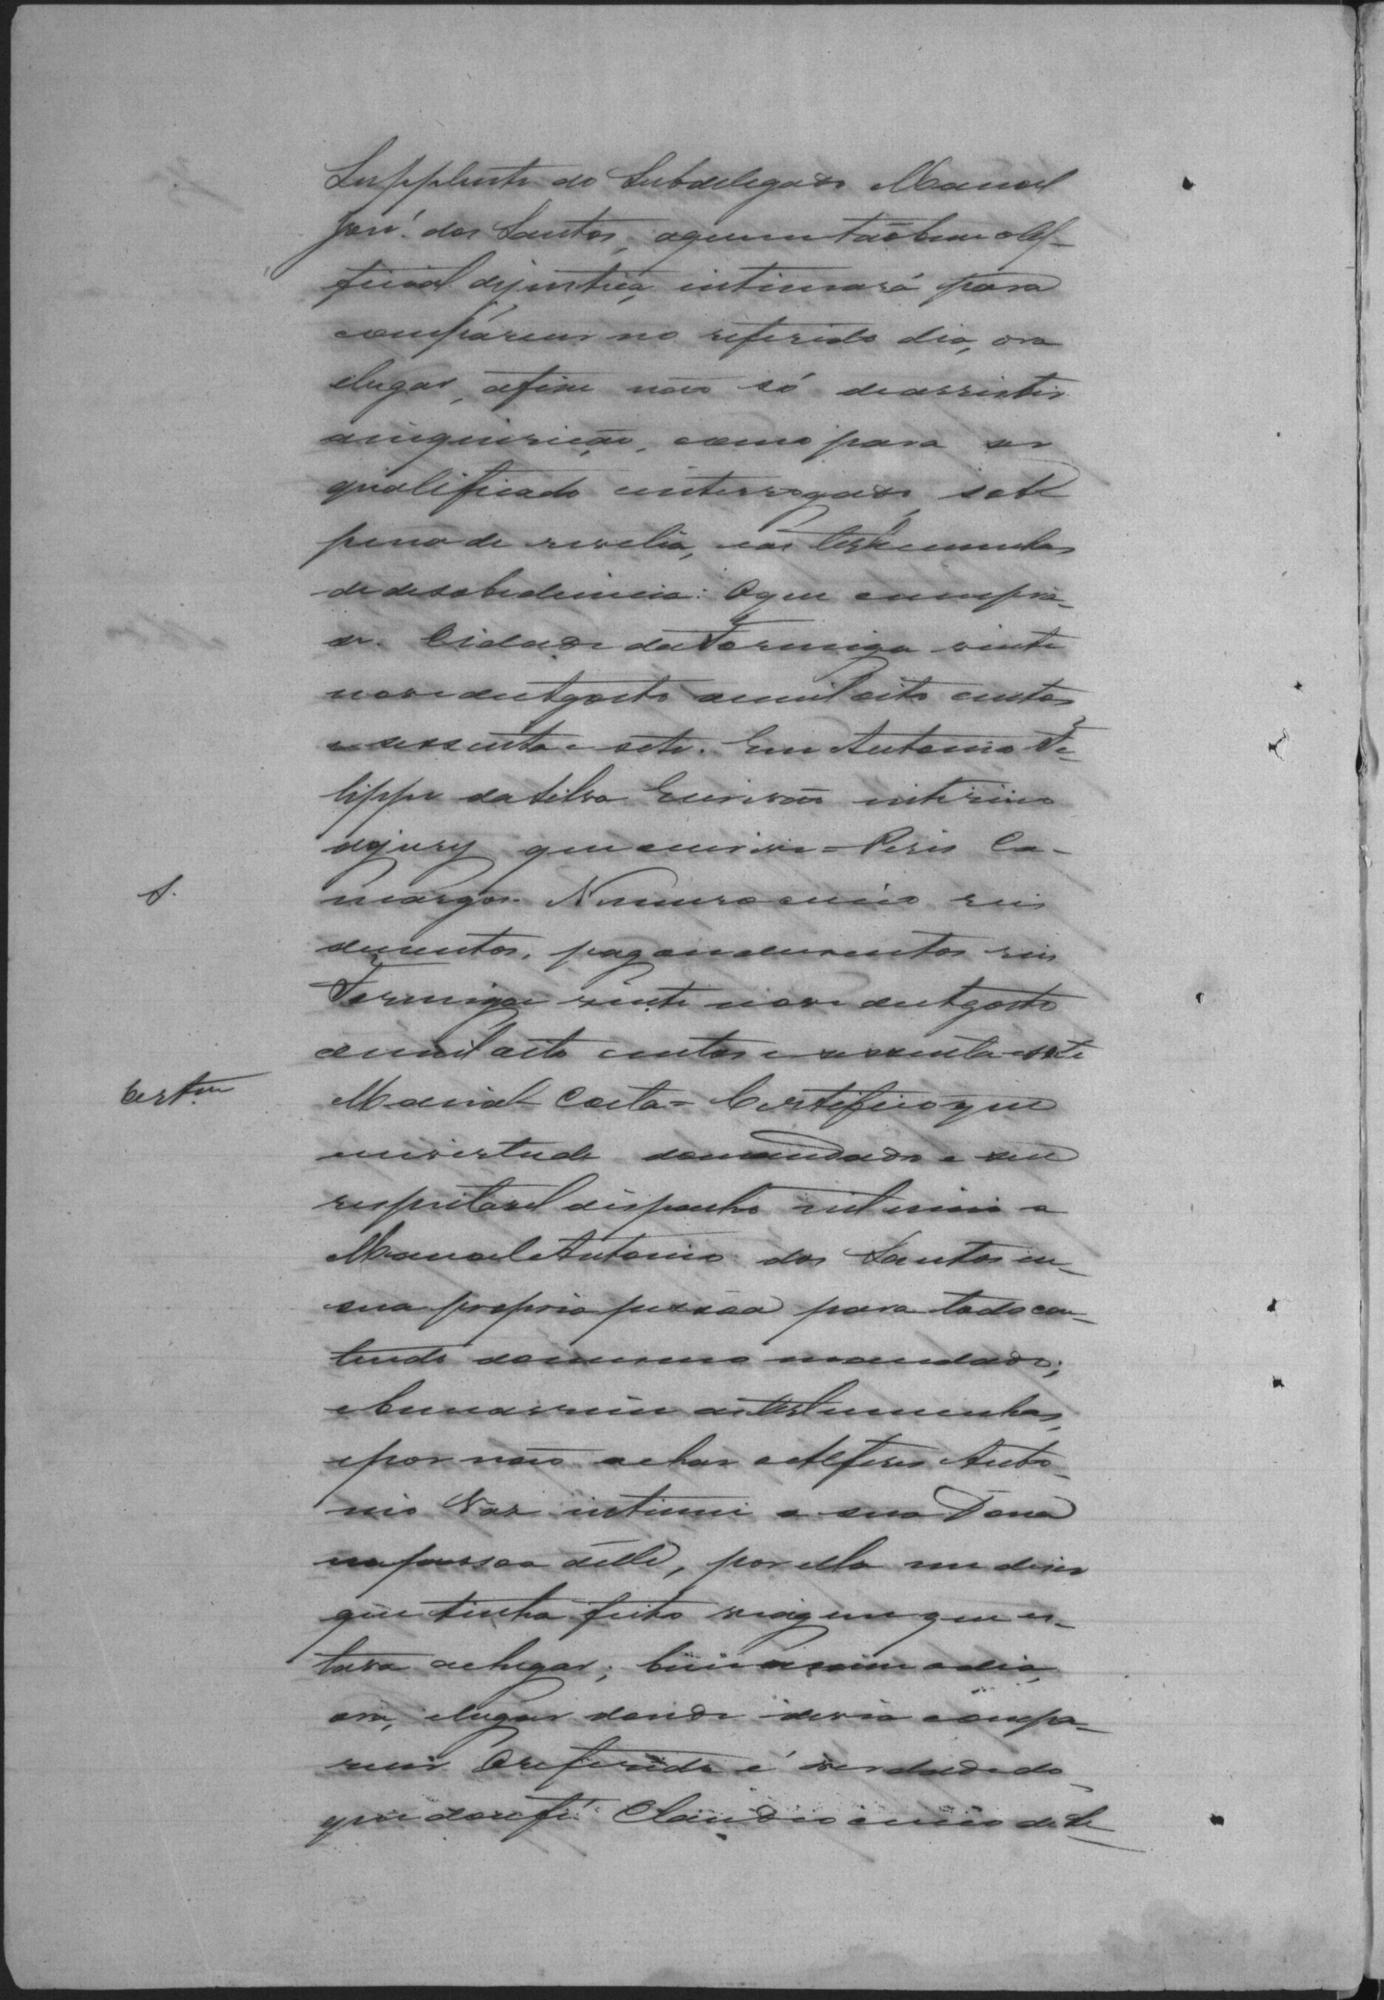 Supplente do Subdelegado Manoel
José dos Santos, aquem tãobem o Of-
ficial dejustiça intimará para
comparecer no referido dia, ora
elugar, afim não só deassistir
ainquirição, como para ser
qualificado einterrogado, sob
pena de revelia, eas testemunhas
de desobediencia: Oque cumpra-
se. Cidade da Formiga vinte
nove de Agosto demil oito centos
e sessenta e sete. Eu Antonio Fe-
lippe da Silva Escrivão interino
dojury que escrevi = Peres Ca-
S.
margos. Numero cinco reis
duzentos. pagou duzentos reis
Formiga vinte nove de Agosto
demil oito centos e sessenta e sete
Certam
Maciel Costa = Certifico que
emvirtude domandado e seu
respeitavel dispacho intimei a
Manoel Antonio dos Santos em
sua propria pessoa para todo con-
teudo domesmo mandado;
ebem assim as testemunhas,
epor não achar o Alferes Anto-
nio Vaz intimei a sua Dona
na pessoa delle, por ella me dizer
que tinha feito viagem que es-
tava achegar; bem assim o dia
ora, elugar donde devia compa-
recer O referido é verdade do
que dou fé. Claudio cinco de Se-